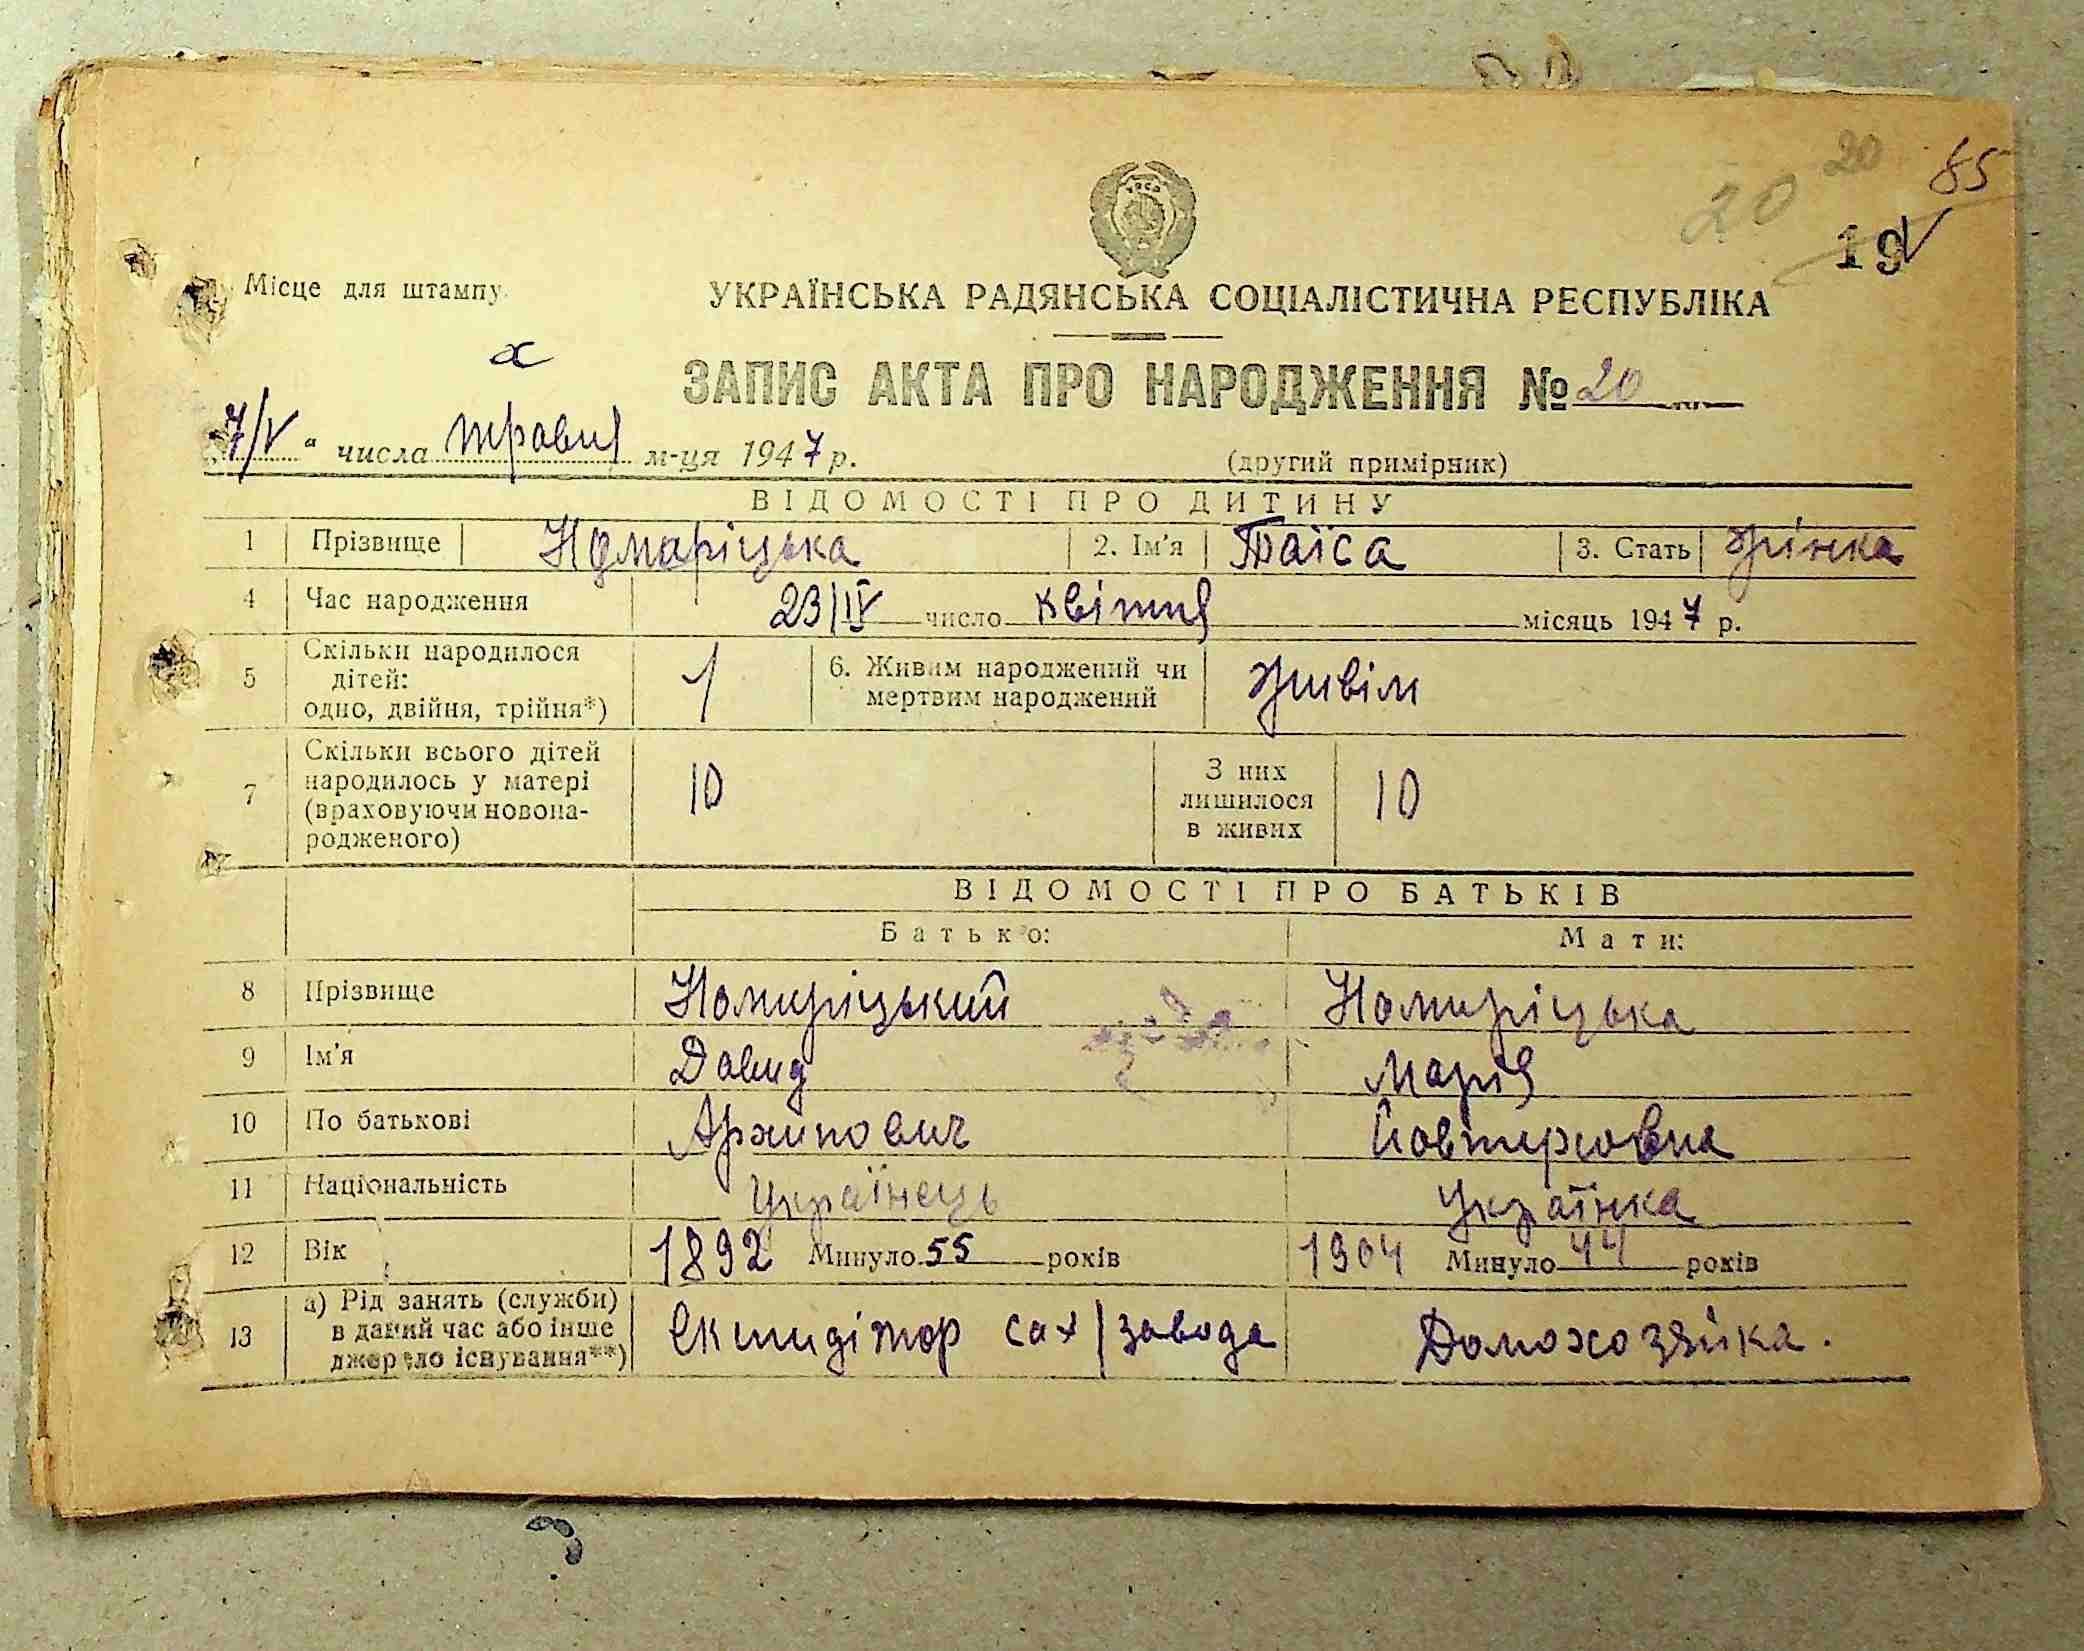 20 20 85
19
Місце для штампу
УКРАЇНСЬКА РАДЯНСЬКА СОЦІАЛІСТИЧНА РЕСПУБЛІКА
ЗАПИС АКТА ПРО НАРОДЖЕННЯ № 20
7/V " числа травня м-ця 1947 р.
(другий примірник)
ВІДОМОСТІ ПРО ДИТИНУ
1 Прізвище Номаріцька 2. Ім'я Таїса 3. Стать жінка
4 Час народження 23/IV число квітня місяць 1947 р.
5 Скільки народилося дітей: одно, двійня, трійня*) 1 6. Живим народжений чи мертвим народжений живім
7 Скільки всього дітей народилось у матері (враховуючи новонародженого) 10 З них лишилося в живих 10
ВІДОМОСТІ ПРО БАТЬКІВ
Батько: Мати:
8 Прізвище Номиріцький Номиріцька
9 Ім'я Давид Марія
10 По батькові Архипович
11 Національність Українець Українка
12 Вік 1892 Минуло 55 років 1904 Минуло 44 років
13 а) Рід занять (служби) в даний час або інше джерело існування**) сах/завода Домохозяйка.